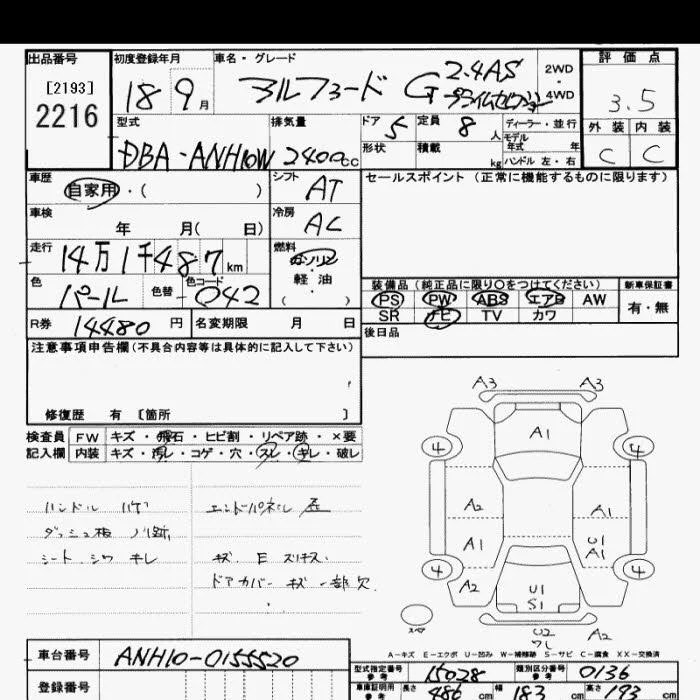 出品番号
[2193]
2216
初度登録年月
18 9 月
車名・グレード
アルファード G 2.4AS
プライムセレクション
2WD
・
4WD
評価点
3.5
外装 内装
C C
型式
DBA-ANH10W
排気量
2400cc
ドア 5
定員 8 人
形状
積載 kg
ディーラー・並行
モデル年式 年
ハンドル 左・右
車歴
自家用・( )
シフト AT
セールスポイント (正常に機能するものに限ります)
車検
年 月( 日)
冷房 AC
走行
14万1千487km
燃料
ガソリン
・
軽油
( )
色
パール
色替
色コード
042
装備品 (純正品に限り○をつけてください)
新車保証書
PS PW ABS エアB AW
有・無
SR ナビ TV カワ
R券 14480 円
名変期限 月 日
後日品
注意事項申告欄(不具合内容等は具体的に記入して下さい)
修復歴 有 〔箇所 〕
検査員 FW キズ・飛石・ヒビ割・リペア跡・×要
記入欄 内装 キズ・汚レ・コゲ・穴・スレ・キレ・破レ
ハンドル ハゲ
ダッシュ板 ノリ跡
シート シワ キレ
エンドパネル
キズ E スリキズ
ドアカバー キズ 一部欠
A3 A3
A1
4 4
A2 A1
A1 U1
A1
4 4
A2
U1
S1
スペア
U2 A2
A-キズ E-エクボ U-凹み W-補修跡 S-サビ C-腐食 XX-交換済
車台番号 ANH10-0155520
登録番号
型式指定番号
参考
15028
類別区分番号
参考
0136
車庫証明用
参考
長さ 486 cm
幅 183 cm
高さ 193 cm